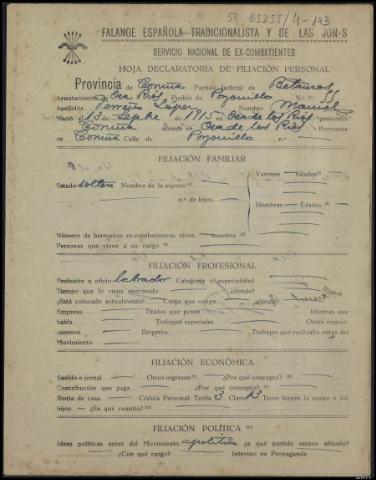 59 65255/4-143
FALANGE ESPAÑOLA TRADICIONALISTA Y DE LAS JON-S
SERVICIO NACIONAL DE EX-COMBATIENTES
HOJA DECLARATORIA DE FILIACIÓN PERSONAL
Provincia de Coruña Partido Judicial de Betanzos
Ayuntamiento de Oza Rios Pueblo de N.º 55
Apellidos Lopez Nombre Manuel
Nació el 13 de Sepbre de 1915 en Oza de los Rios provincia
Coruña donde en Oza de los Rios Provincia
de Coruña Calle de n.º
FILIACIÓN FAMILIAR
Varones Edades
Estado soltero Nombre de la esposa
n.º de hijos
Hembras Edades
Número de hermanos ex-combatientes, vivos muertos
Personas que viven a su cargo
FILIACIÓN PROFESIONAL
Profesión u oficio labrador Categoría o especialidad
Tiempo que lo viene ejerciendo ¿donde?
¿Está colocado actualmente? Cargo que ocupa ¿donde?
Empresa Títulos que posee Idiomas que
habla Trabajos especiales Otros conoci-
mientos Empresa Trabajos que realizaba antes del
Movimiento
FILIACIÓN ECONÓMICA
Sueldo o jornal Otros ingresos ¿Por qué concepto?
Contribución que paga ¿Por qué concepto?
Renta de casa Cédula Personal Tarifa 3 Clase 13 Tiene bienes la mujer o los
hijos ¿En qué cuantía?
FILIACIÓN POLÍTICA
Ideas políticas antes del Movimiento apolítico ¿a qué partido estuvo afiliado?
¿Con qué cargo? Intervino en Propaganda